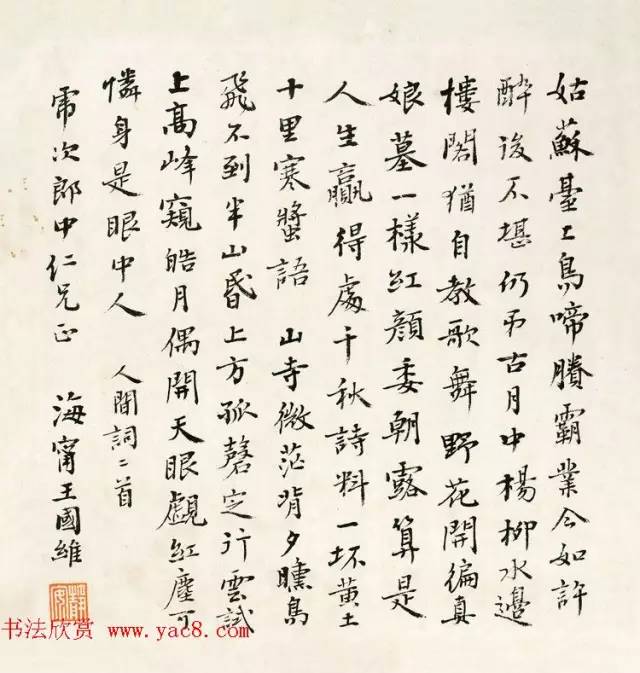 姑蘇臺上烏啼賸霸業今如許
醉後不堪仍弔古月中楊柳水邊
樓閣猶自教歌舞野花開徧真
娘墓一樣紅顏委朝露算是
人生贏得處千秋詩料一抔黃土
十里寒螿語 山寺微茫背夕曛鳥
飛不到半山昏上方孤磬定行雲試
上高峰窺皓月偶開天眼覷紅塵可
憐身是眼中人 人間詞二首
次郎中仁兄正 海甯王國維
靜安
书法欣赏 www.yac8.com